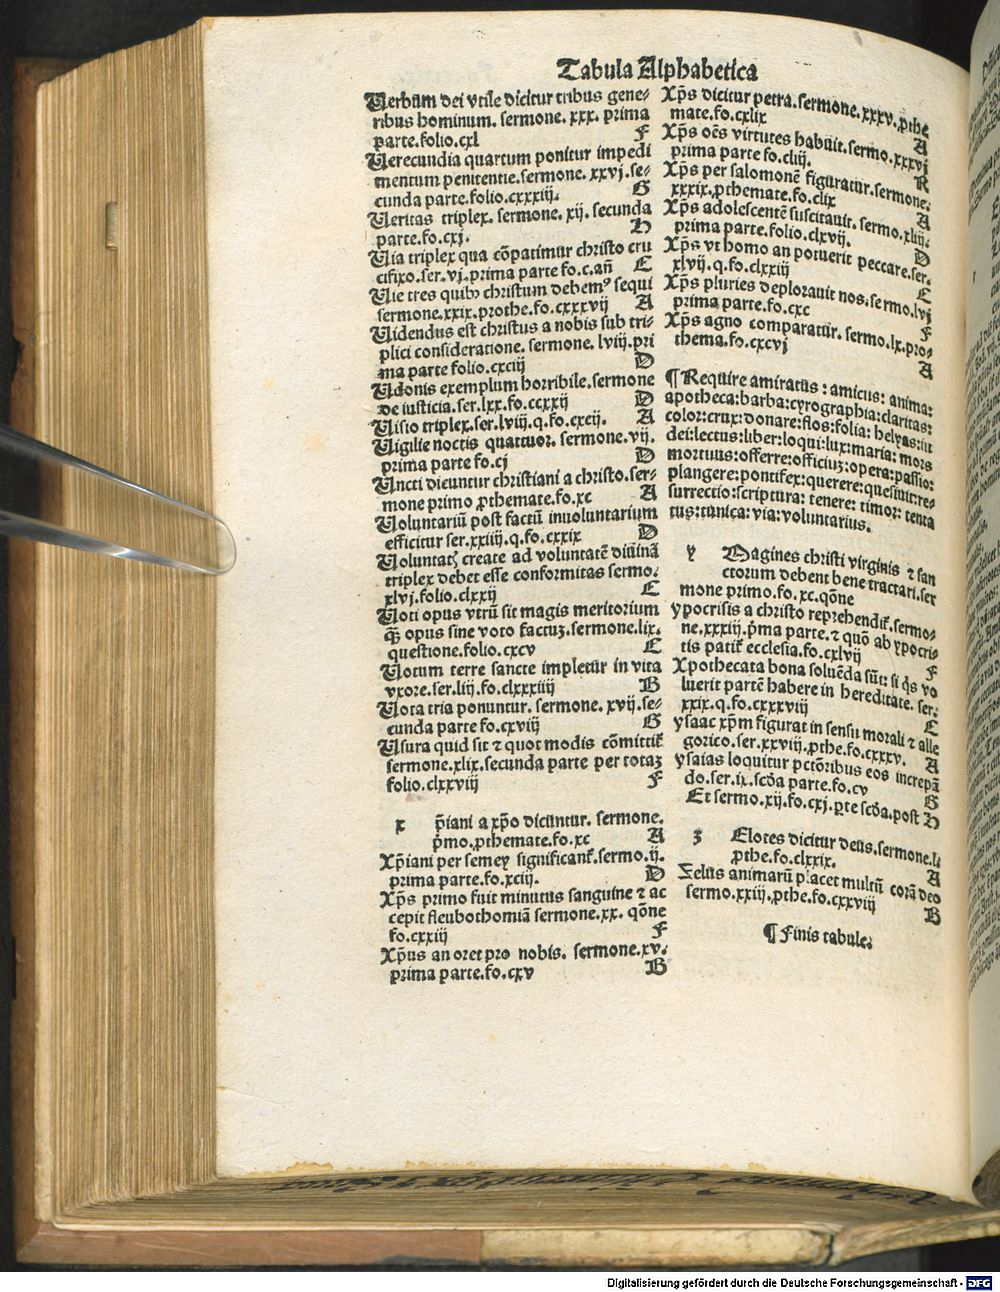 Tabula Alphabetica
Verbum dei vtile dicitur tribus gene-
ribus hominum. sermone. xxx. prima
parte.folio.cxl F
Verecundia quartum ponitur impedi
mentum penitentie.sermone. xxvj.se-
cunda parte.folio.cxxxiij. G
Veritas triplex. sermone. xij. secunda
parte.fo.cxj. H
Via triplex qua cōpatimur christo cru
cifixo.ser.vj.prima parte fo.c.añ E
Vie tres quibꝰ christum debemꝰ sequi
sermone.xxix.prothe.fo.cxxxvij A
Videndus est christus a nobis sub tri-
plici consideratione. sermone. lviij.pri
ma parte folio.cxciij D
Udonis exemplum horribile.sermone
de iusticia.ser.lxx.fo.ccxxij D
Visio triplex.ser.lviij.q.fo.cxcij. A
Vigilie noctis quattuor. sermone.vij.
prima parte fo.cj D
Uncti dicuntur christiani a christo.ser-
mone primo ꝓthemate.fo.xc A
Voluntariū post factū inuoluntarium
efficitur ser.xxiiij.q.fo.cxxix D
Voluntatꝭ create ad voluntatē diuinā
triplex debet esse conformitas sermo.
xlvj.folio.clxxij E
Voti opus vtrū sit magis meritorium
ꝙ̄ opus sine voto factuꝫ.sermone.lix.
questione.folio.cxcv E
Votum terre sancte impletur in vita
vxore.ser.liij.fo.clxxxiiij B
Vota tria ponuntur. sermone. xvij.se-
cunda parte fo.cxviij G
Usura quid sit ⁊ quot modis cōmittit̄
sermone.xlix.secunda parte per totaꝫ
folio.clxxviij F
x p̄iani a xp̄o dicuntur. sermone.
p̄mo.ꝓthemate.fo.xc A
Xp̄iani per semeꝝ significant̄.sermo.ij.
prima parte.fo.xciij. D
Xp̄s primo fuit minutus sanguine ⁊ ac
cepit fleubothomiā sermone.xx. qōne
fo.cxxiij F
Xp̄us an oret pro nobis. sermone.xv.
prima parte.fo.cxv B
Xp̄s dicitur petra.sermone.xxxv.ꝓthe
mate.fo.cxlix A
Xp̄s oēs virtutes habuit.sermo.xxxvj
prima parte fo.cliij. R
Xp̄s per salomonē figuratur.sermone.
xxxix.ꝓthemate.fo.clix A
Xp̄s adolescentē suscitauit. sermo.xliij.
prima parte.folio.clxvij. D
Xp̄s vt homo an potuerit peccare.ser.
xlvij.q.fo.clxxiij E
Xp̄s pluries deplorauit nos.sermo.lvj
prima parte.fo.cxc F
Xp̄s agno comparatur. sermo.lx.pro-
thema.fo.cxcvj A
¶ Require amiratus : amicus: anima:
apotheca:barba:cyrographia:claritas:
color:crux:donare:flos:folia: helyas:iu
dei:lectus:liber:loqui:lux:maria: mors
mortuus:offerre:officiuꝫ:opera:passio:
plangere:pontifex:querere:quesiuit:re-
surrectio:scriptura: tenere: timor: tenta
tus:tunica: via:voluntarius.
y Magines christi virginis ⁊ san
ctorum debent bene tractari.ser
mone primo.fo.xc.qōne
ypocrisis a christo reprehendit̄.sermo-
ne.xxxiij.p̄ma parte.⁊ quō ab ypocri-
tis patit̄ ecclesia.fo.cxlvij F
Xpothecata bona soluēda sūt: si q̇s vo
luerit partē habere in hereditate. ser.
xxix.q.fo.cxxxviij E
ysaac xp̄m figurat in sensu morali ⁊ alle
gorico.ser.xxviij.ꝓthe.fo.cxxxv. A
ysaias loquitur pctōribus eos increpā
do.ser.ix.scḋa parte.fo.cv G
Et sermo.xij.fo.cxj.ꝑte scḋa.post H
ʒ Elotes dicitur deus.sermone.l.
ꝓthe.fo.clxxix. A
Zelus animarū placet multū corā deo
sermo.xxiij.ꝓthe.fo.cxxviij B
¶ Finis tabule.
Digitalisierung gefördert durch die Deutsche Forschungsgemeinschaft - DFG